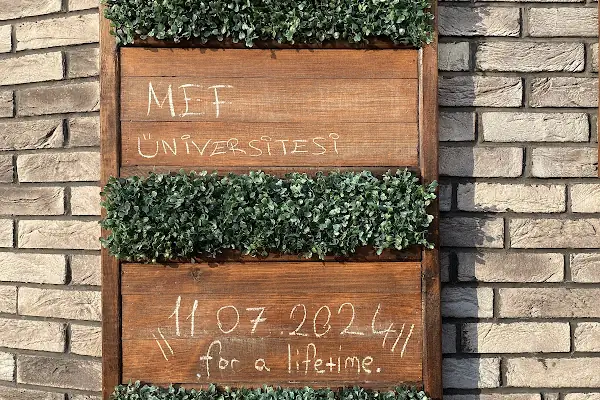 MEF
ÜNİVERSİTESİ
11.07.2024
.for a lifetime.